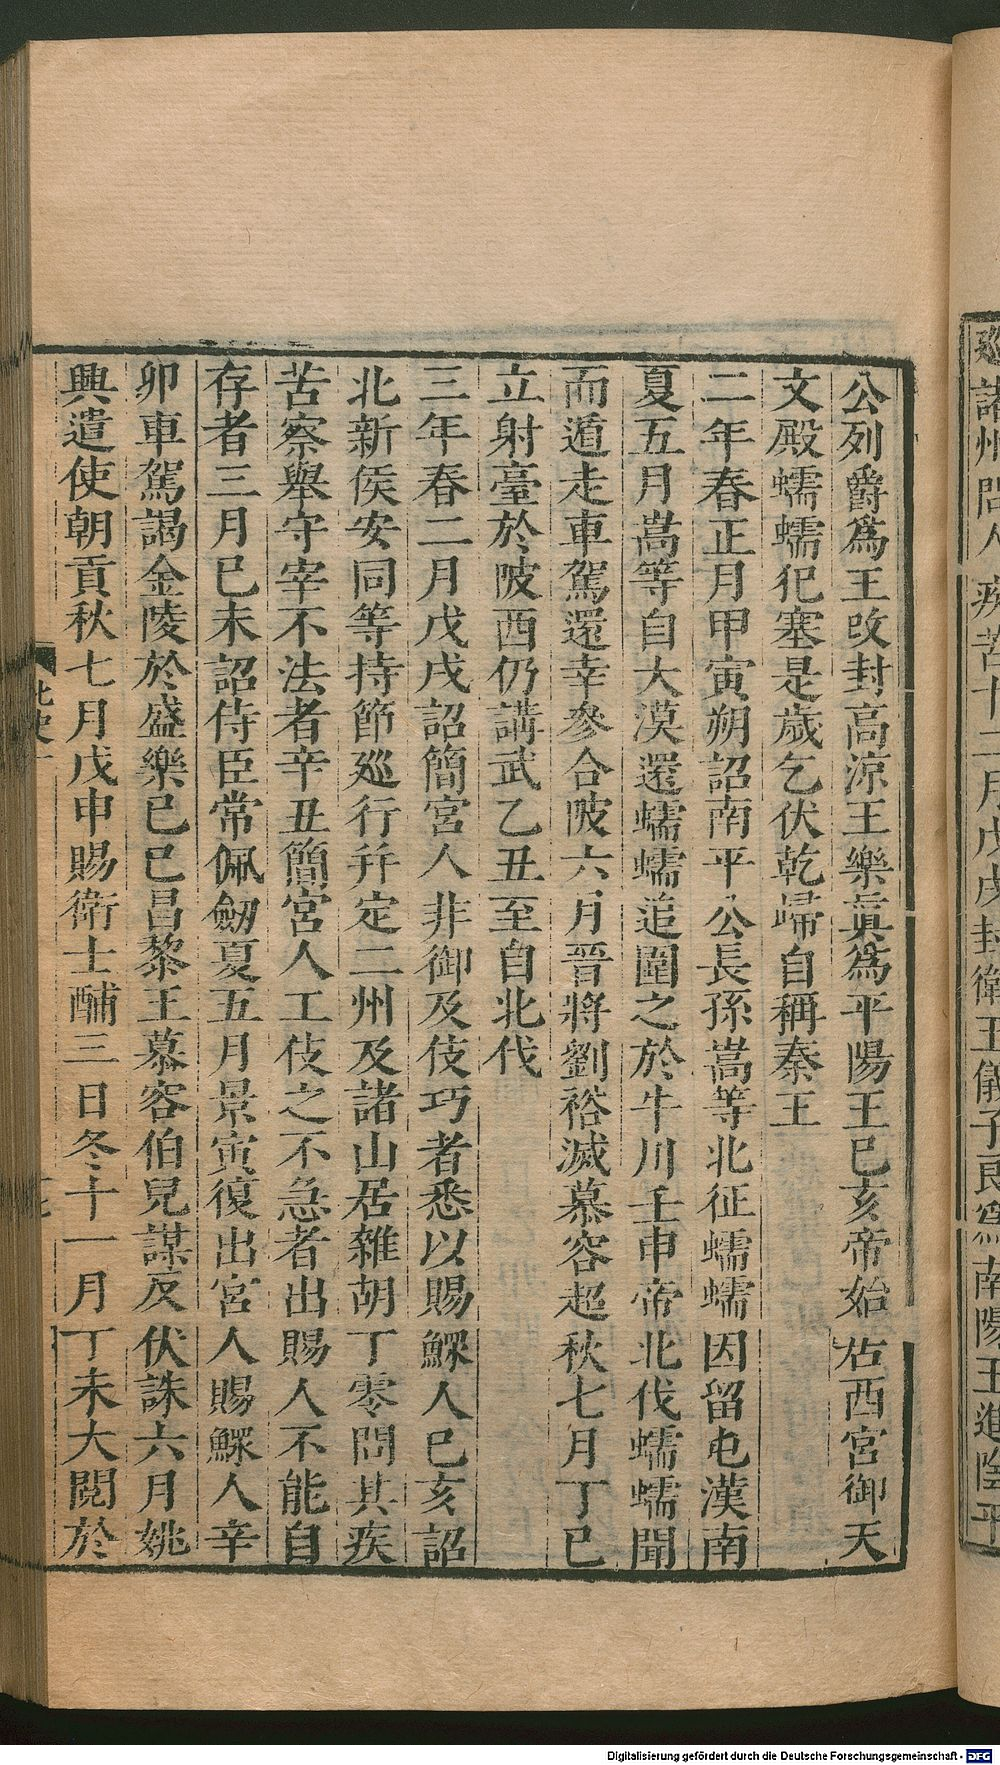 廵諸州問人疾苦十二月戊戌封衛王儀子良為南陽王進陰平
公列爵爲王攺封高涼王樂眞爲平陽王已亥帝始居西宮御天
文殿蠕蠕犯塞是歲乞伏乾歸自稱秦王
二年春正月甲寅朔詔南平公長孫嵩等北征蠕蠕因留屯漢南
夏五月嵩等自大漠還蠕蠕追圍之於牛川壬申帝北伐蠕蠕聞
而遁走車駕還幸參合陂六月晉將劉裕滅慕容超秋七月丁巳
立射臺於陂西仍講武乙丑至自北伐
三年春二月戊戌詔簡宮人非御及伎巧者悉以賜鰥人已亥詔
北新侯安同等持節廵行并定二州及諸山居雜胡丁零問其疾
苦察舉守宰不法者辛丑簡宮人工伎之不急者出賜人不能自
存者三月已未詔侍臣常佩劒夏五月景寅復出宮人賜鰥人辛
卯車駕謁金陵於盛樂已巳昌黎王慕容伯兒謀反伏誅六月姚
興遣使朝貢秋七月戊申賜衛士酺三日冬十一月丁未大閱於
北史一
Digitalisierung gefördert durch die Deutsche Forschungsgemeinschaft - DFG